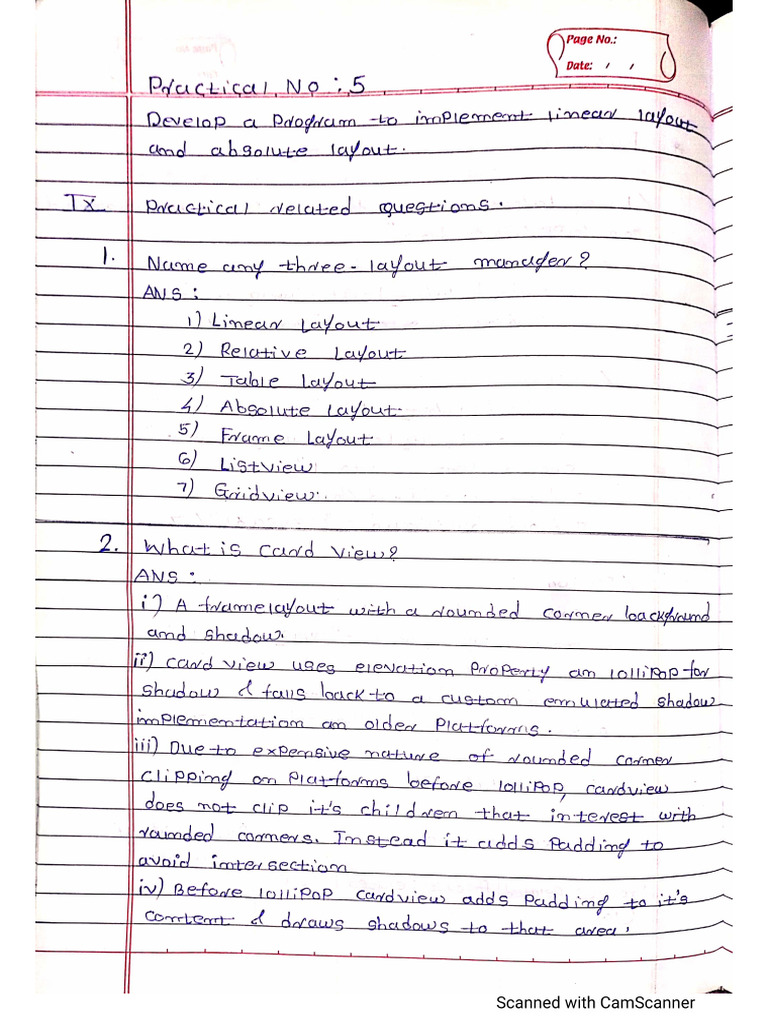 Page No.:
Date: / /
Practical No : 5
Develop a program to implement linear layout
and absolute layout.
IX Practical related questions.
1. Name any three-layout manager?
ANS :
1) Linear Layout
2) Relative Layout
3) Table Layout
4) Absolute Layout.
5) Frame Layout
6) Listview
7) Gridview.
2. What is Card View?
ANS :
i) A framelayout with a rounded corner background
and shadow.
ii) card view uses elevation property an lollipop for
shadow & falls back to a custom emulated shadow
implementation an older Platforms.
iii) Due to expensive nature of rounded corner
clipping on platforms before lollipop, cardview
does not clip it's children that interest with
rounded corners. Instead it adds Padding to
avoid intersection
iv) Before lollipop cardview adds Padding to it's
content & draws shadows to that area.
Scanned with CamScanner